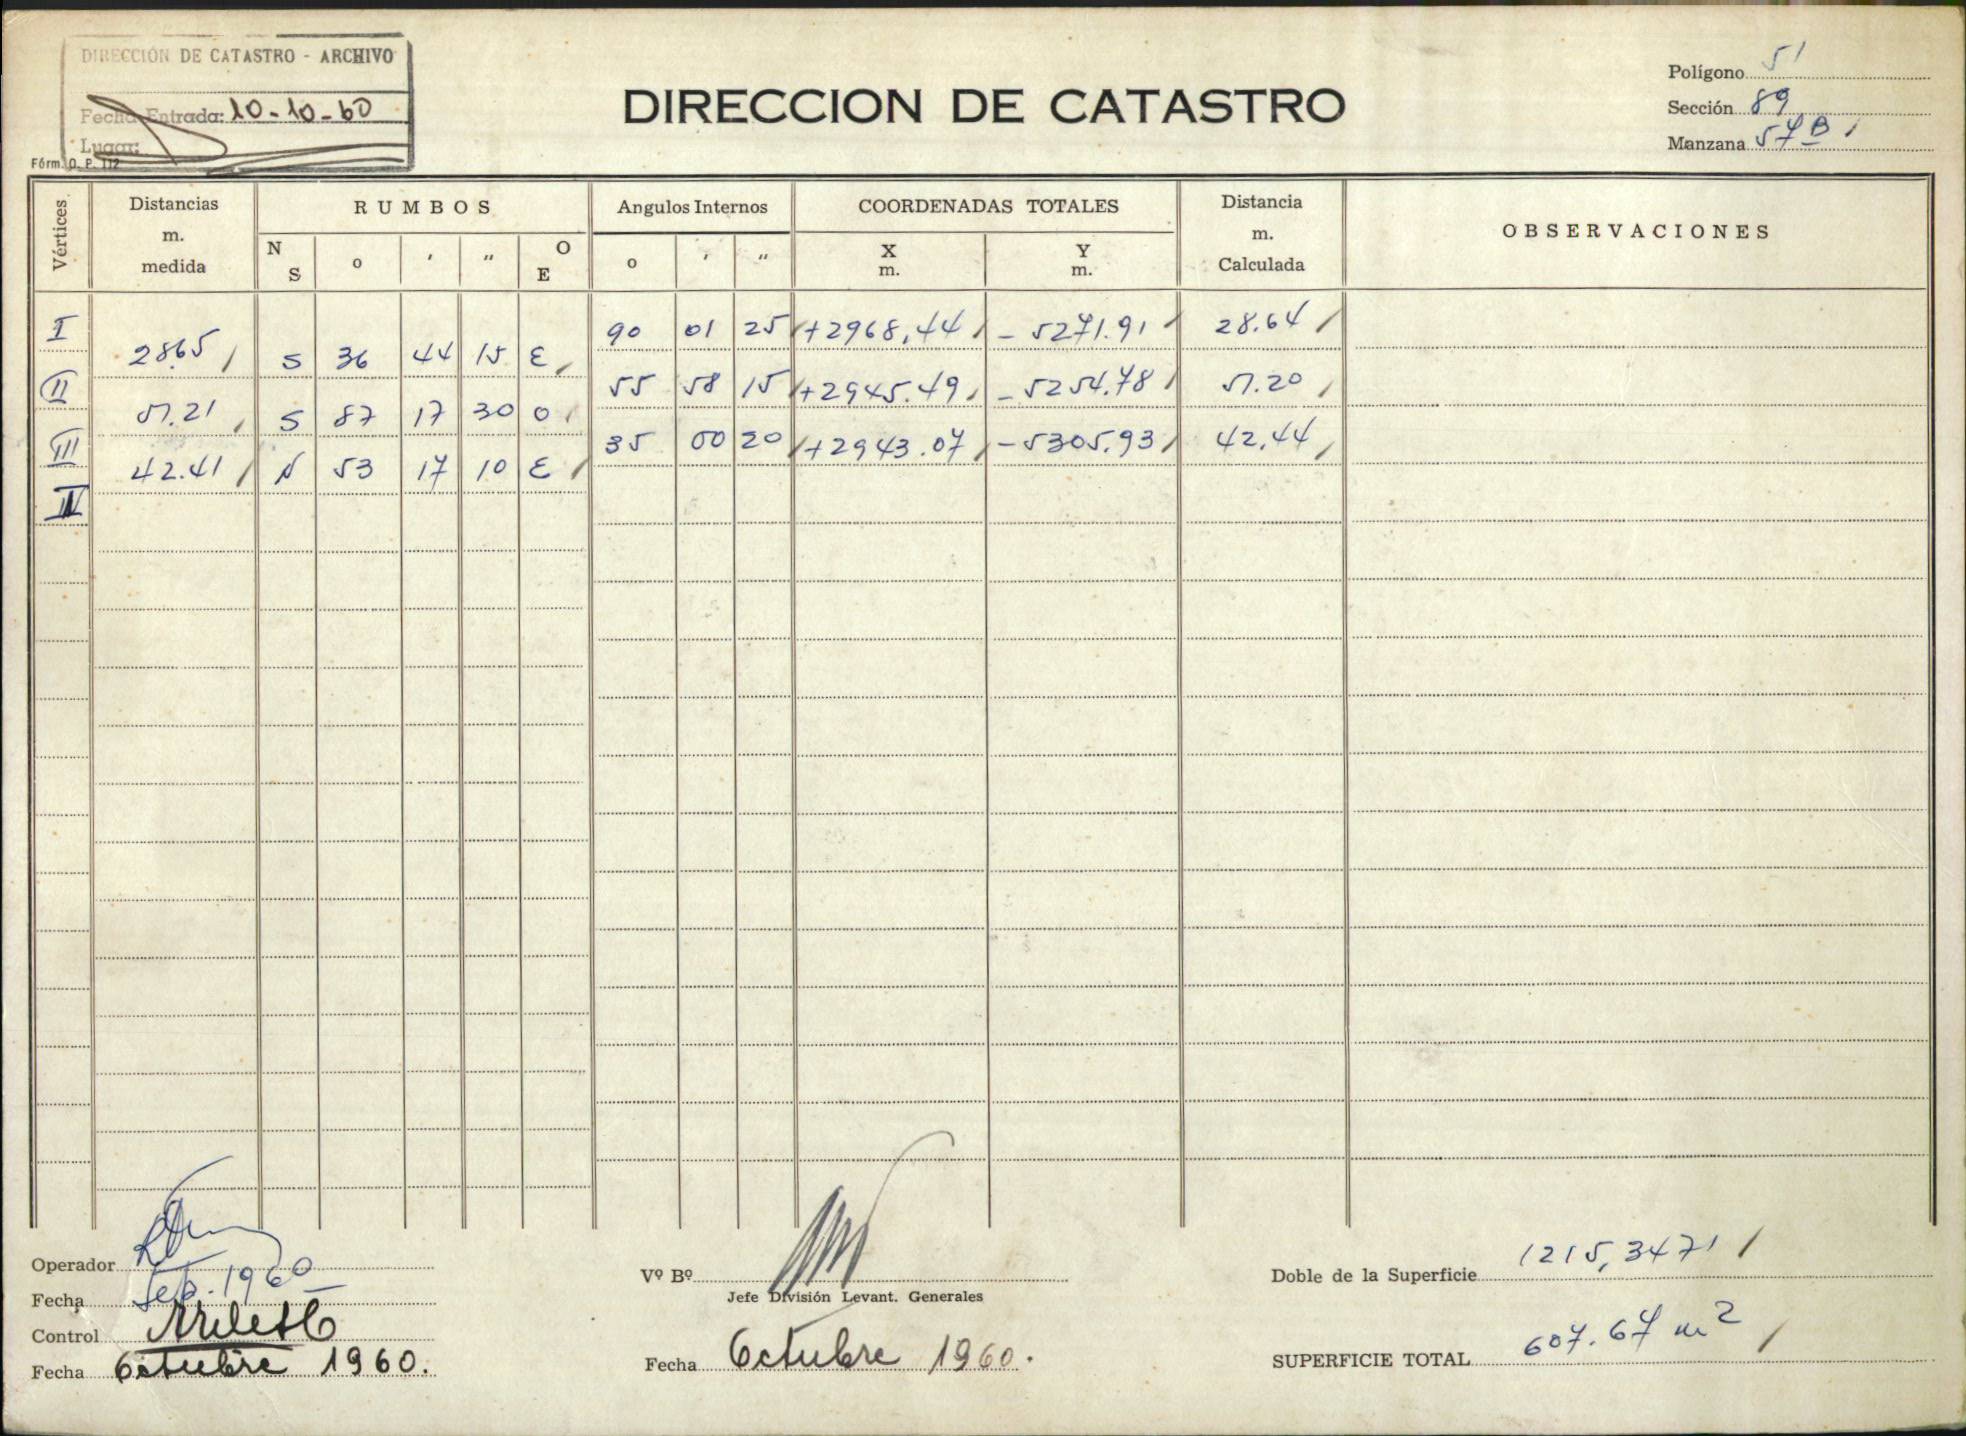 DIRECCIÓN DE CATASTRO - ARCHIVO
Fecha Entrada: 10-10-60
Lugar:
Fórm. O. P. 112
DIRECCION DE CATASTRO
Polígono 51
Sección 89
Manzana 57B
Vértices Distancias m. medida RUMBOS Angulos Internos COORDENADAS TOTALES Distancia m. Calculada OBSERVACIONES
N S o ' " O E o ' " X m. Y m.
I 90 01 25 +2968,44 - 5271.91 28.64
28.65 S 36 44 15 E
II 55 58 15 +2945.49 - 5254.78 51.20
51.21 S 87 17 30 O
III 35 00 20 +2943.07 - 5305.93 42.44
42.41 N 53 17 10 E
IV
Operador
Fecha Sep. 1960
Control
Fecha Octubre 1960.
Vº Bº
Jefe División Levant. Generales
Fecha Octubre 1960.
Doble de la Superficie 1215,3471
SUPERFICIE TOTAL 607.67 m2